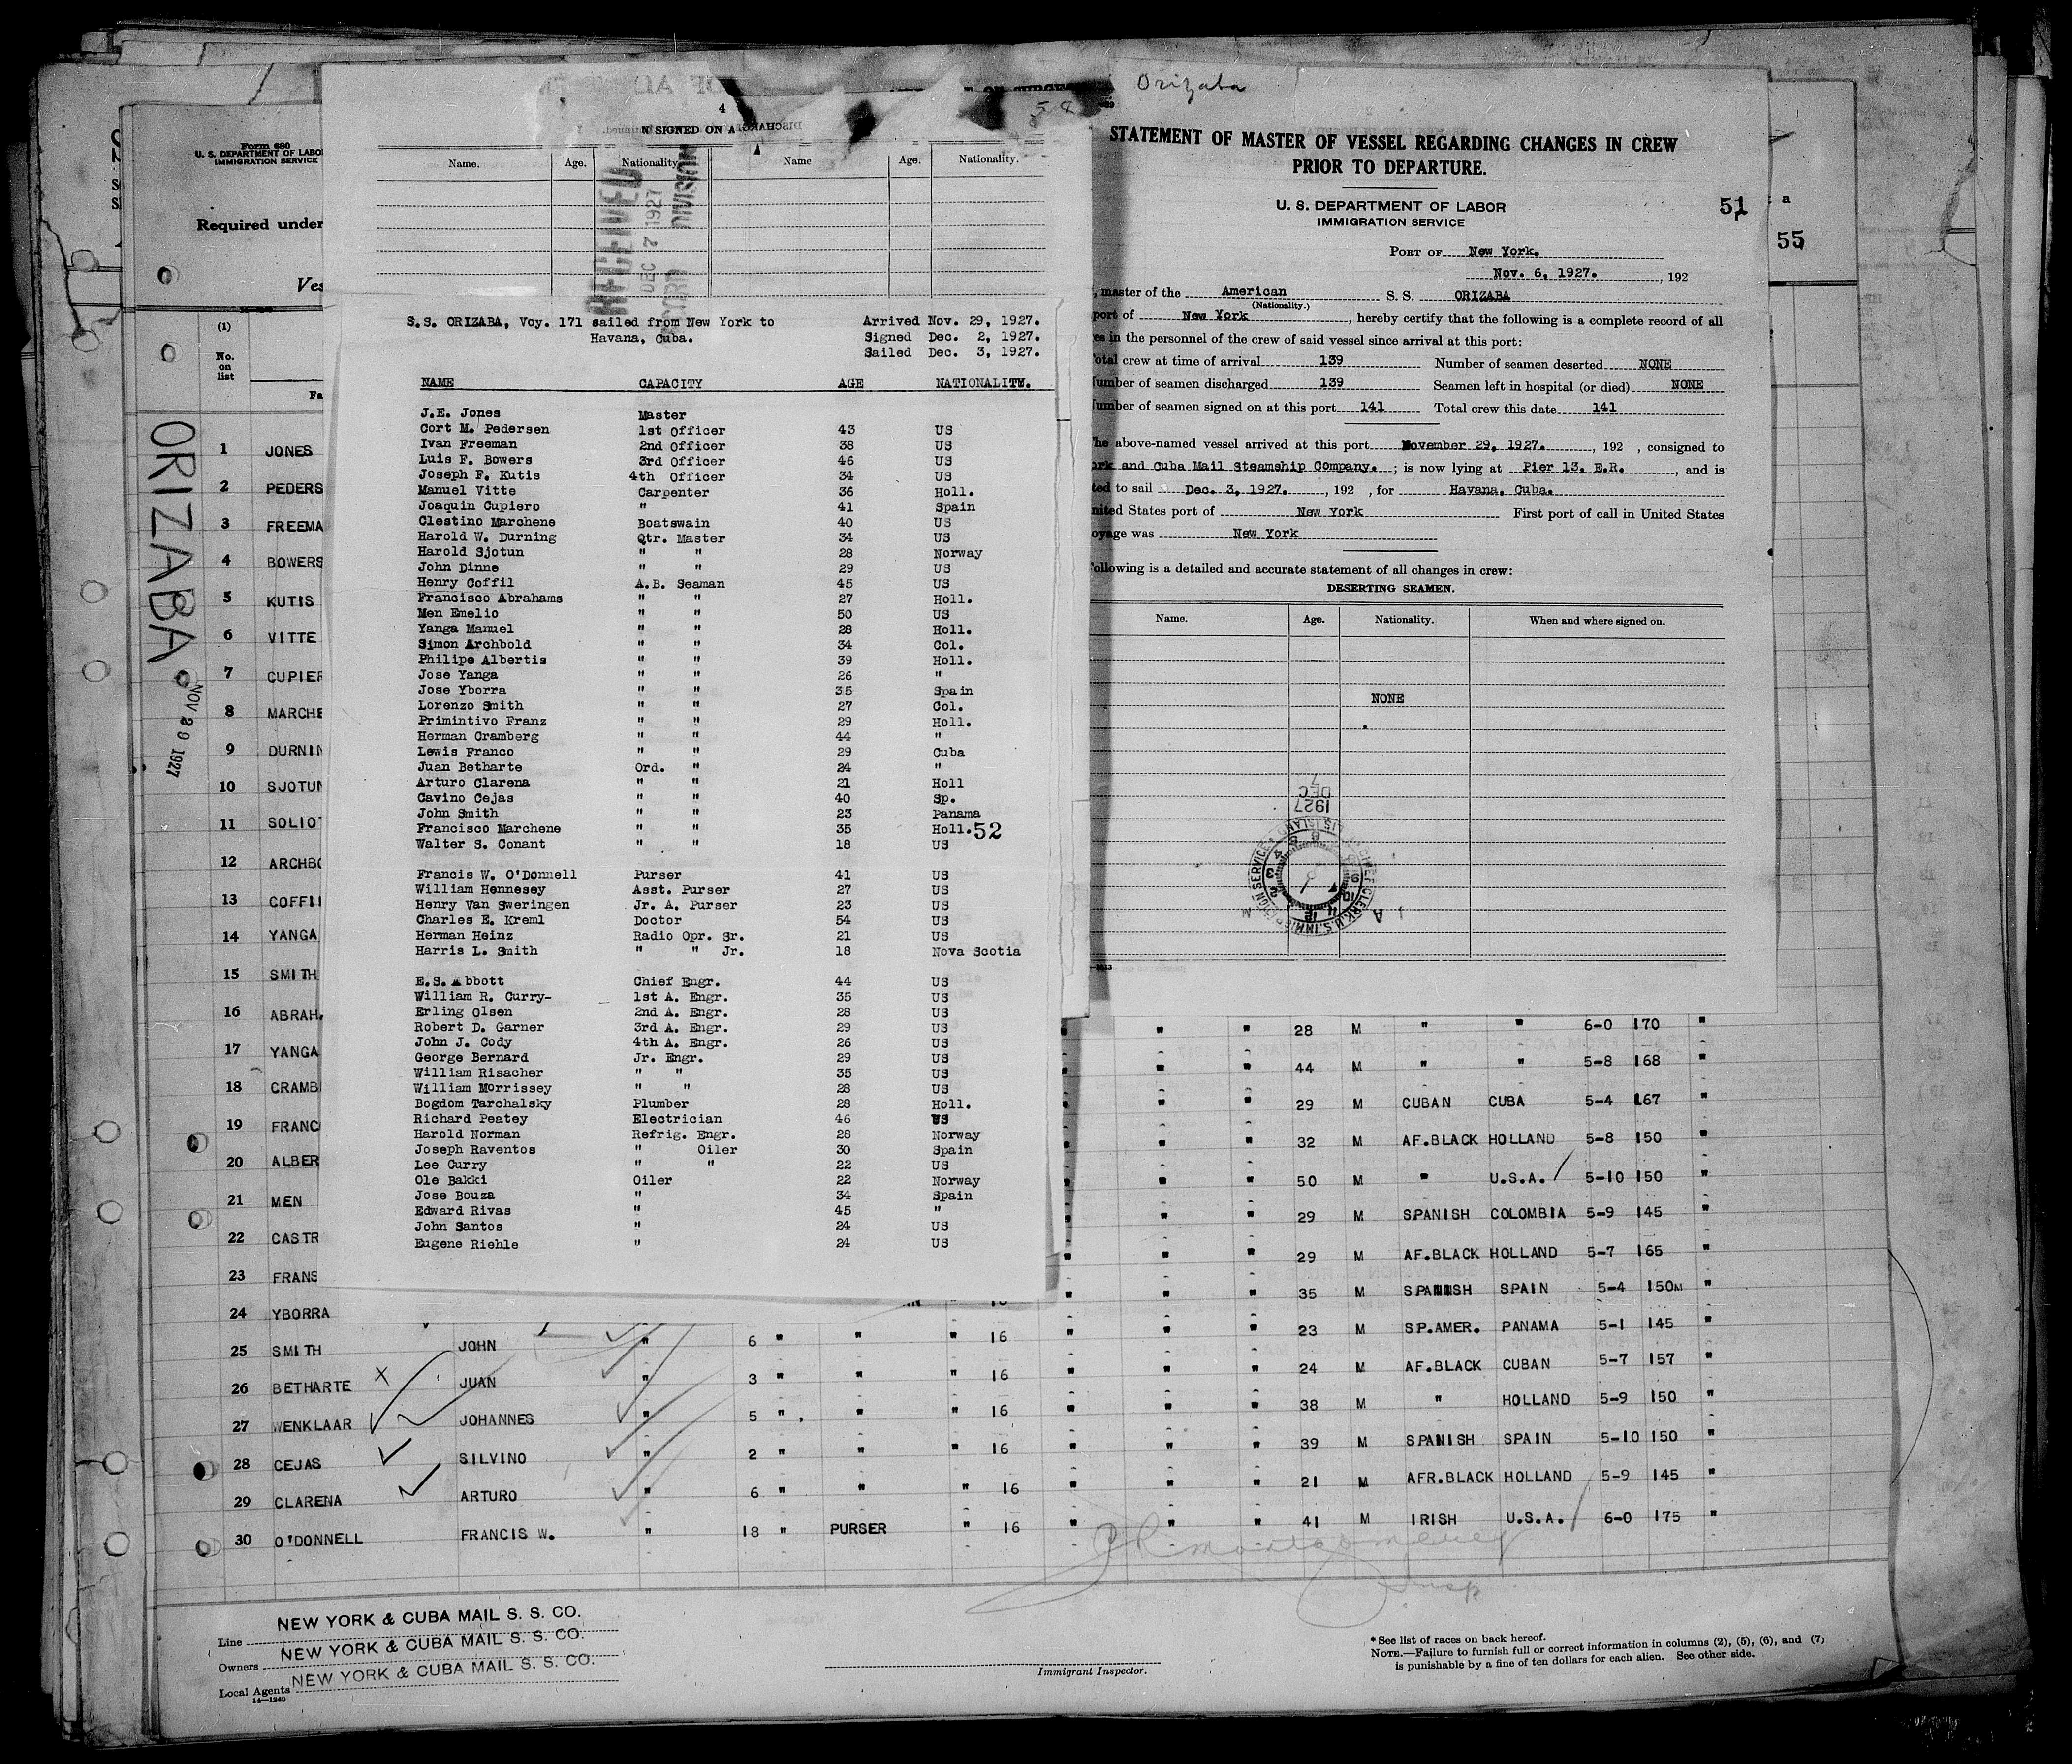 Form 680
U. S. DEPARTMENT OF LABO
IMMIGRATION SERVICE
Required under
Ves
(1)
No.
on
list
Fa
ORIZABA
NOV 29 1927
1 JONES
2 PEDERS
3 FREEMA
4 BOWERS
5 KUTIS
6 VITTE
7 CUPIER
8 MARCHE
9 DURNIN
10 SJOTUN
11 SOLIOT
12 ARCHBO
13 COFFIL
14 YANGA
15 SMITH
16 ABRAHA
17 YANGA
18 CRAMB
19 FRANC
20 ALBER
21 MEN
22 CASTR
23 FRANS
24 YBORRA
4
N SIGNED ON A
Name. Age. Nationality. Name Age. Nationality.
RECEIVED
DEC 7 1927
DIVISION
S.S. ORIZABA, Voy. 171 sailed from New York to Arrived Nov. 29, 1927.
Havana, Cuba. Signed Dec. 2, 1927.
Sailed Dec. 3, 1927.
NAME CAPACITY AGE NATIONALITY.
J.E. Jones Master
Cort M. Pedersen 1st Officer 43 US
Ivan Freeman 2nd Officer 38 US
Luis F. Bowers 3rd Officer 46 US
Joseph F. Kutis 4th Officer 34 US
Manuel Vitte Carpenter 36 Holl.
Joaquin Cupiero " 41 Spain
Clestino Marchene Boatswain 40 US
Harold W. Durning Qtr. Master 34 US
Harold Sjotun " " 28 Norway
John Dinne " " 29 US
Henry Coffil A.B. Seaman 45 US
Francisco Abrahams " " 27 Holl.
Men Emelio " " 50 US
Yanga Manuel " " 28 Holl.
Simon Archbold " " 34 Col.
Philipe Albertis " " 39 Holl.
Jose Yanga " " 26 "
Jose Yborra " " 35 Spain
Lorenzo Smith " " 27 Col.
Primintivo Franz " " 29 Holl.
Herman Cramberg " " 44 "
Lewis Franco " " 29 Cuba
Juan Betharte Ord. " 24 "
Arturo Clarena " " 21 Holl
Cavino Cejas " " 40 Sp.
John Smith " " 23 Panama
Francisco Marchene " " 35 Holl. 52
Walter S. Conant " " 18 US
Francis W. O'Donnell Purser 41 US
William Hennesey Asst. Purser 27 US
Henry Van Sweringen Jr. A. Purser 23 US
Charles E. Kreml Doctor 54 US
Herman Heinz Radio Opr. Sr. 21 US
Harris L. Smith " " Jr. 18 Nova Scotia
E.S. Abbott Chief Engr. 44 US
William R. Curry- 1st A. Engr. 35 US
Erling Olsen 2nd A. Engr. 28 US
Robert D. Garner 3rd A. Engr. 29 US
John J. Cody 4th A. Engr. 26 US
George Bernard Jr. Engr. 29 US
William Risacher " " 35 US
William Morrissey " " 28 US
Bogdom Tarchalsky Plumber 28 Holl.
Richard Peatey Electrician 46 US
Harold Norman Refrig. Engr. 28 Norway
Joseph Raventos " Oiler 30 Spain
Lee Curry " " 22 US
Ole Bakki Oiler 22 Norway
Jose Bouza " 34 Spain
Edward Rivas " 45 "
John Santos " 24 US
Eugene Riehle " 24 US
Orizaba
STATEMENT OF MASTER OF VESSEL REGARDING CHANGES IN CREW
PRIOR TO DEPARTURE.
U. S. DEPARTMENT OF LABOR
IMMIGRATION SERVICE
51
a
55
PORT OF New York.
Nov. 6, 1927. , 192
, master of the American S. S. ORIZABA
(Nationality.)
port of New York , hereby certify that the following is a complete record of all
es in the personnel of the crew of said vessel since arrival at this port:
otal crew at time of arrival 139 Number of seamen deserted NONE
umber of seamen discharged 139 Seamen left in hospital (or died) NONE
umber of seamen signed on at this port 141 Total crew this date 141
he above-named vessel arrived at this port November 29, 1927. , 192 , consigned to
ork and Cuba Mail Steamship Company. ; is now lying at Pier 13. E.R. , and is
ted to sail Dec. 3, 1927. , 192 , for Havana, Cuba.
nited States port of New York First port of call in United States
oyage was New York
ollowing is a detailed and accurate statement of all changes in crew:
DESERTING SEAMEN.
Name. Age. Nationality. When and where signed on.
NONE
DEC 7
1927
" " 28 M " " 6-0 170 "
" " 44 M " " 5-8 168 "
" " 29 M CUBAN CUBA 5-4 167 "
" " 32 M AF.BLACK HOLLAND 5-8 150 "
" " 50 M " U.S.A. 5-10 150 "
" " 29 M SPANISH COLOMBIA 5-9 145 "
" " 29 M AF.BLACK HOLLAND 5-7 165 "
" " 35 M SPANISH SPAIN 5-4 150M "
25 SMITH JOHN " 6 " " " 16 " " " 23 M SP.AMER. PANAMA 5-1 145 "
26 BETHARTE X JUAN " 3 " " " 16 " " " 24 M AF.BLACK CUBAN 5-7 157 "
27 WENKLAAR JOHANNES " 5 " " " 16 " " " 38 M " HOLLAND 5-9 150 "
28 CEJAS SILVINO " 2 " " " 16 " " " 39 M SPANISH SPAIN 5-10 150 "
29 CLARENA ARTURO " 6 " " " 16 " " " 21 M AFR.BLACK HOLLAND 5-9 145 "
30 O'DONNELL FRANCIS W. " 18 " PURSER " 16 " " " 41 M IRISH U.S.A. 6-0 175 "
Line NEW YORK & CUBA MAIL S. S. CO.
Owners NEW YORK & CUBA MAIL S. S. CO.
Local Agents NEW YORK & CUBA MAIL S. S. CO.
14-1240
Immigrant Inspector.
* See list of races on back hereof.
NOTE.—Failure to furnish full or correct information in columns (2), (5), (6), and (7)
is punishable by a fine of ten dollars for each alien. See other side.